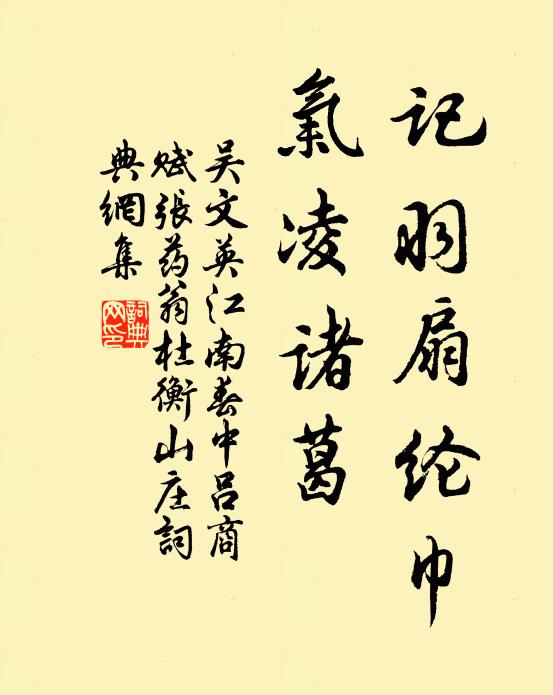 记羽扇纶巾
氣凌诸葛
吴文英江南春中吕商
赋張药翁杜衡山庄詞
典網集
詞典網印